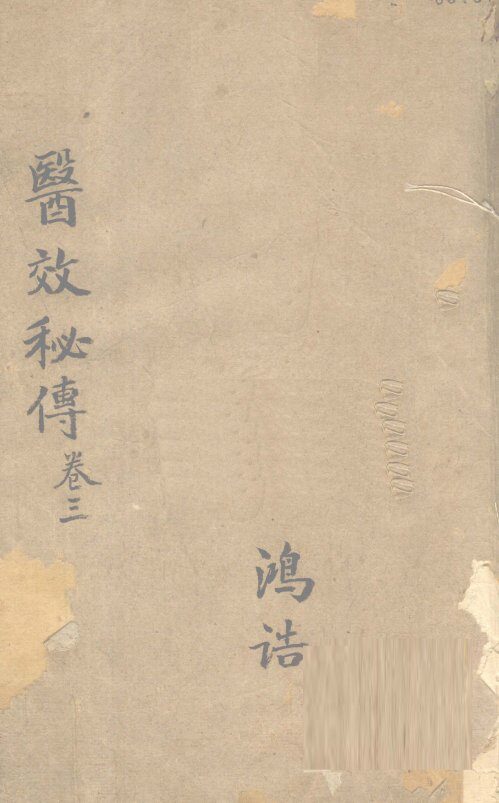 醫效秘傳卷三
鴻誥